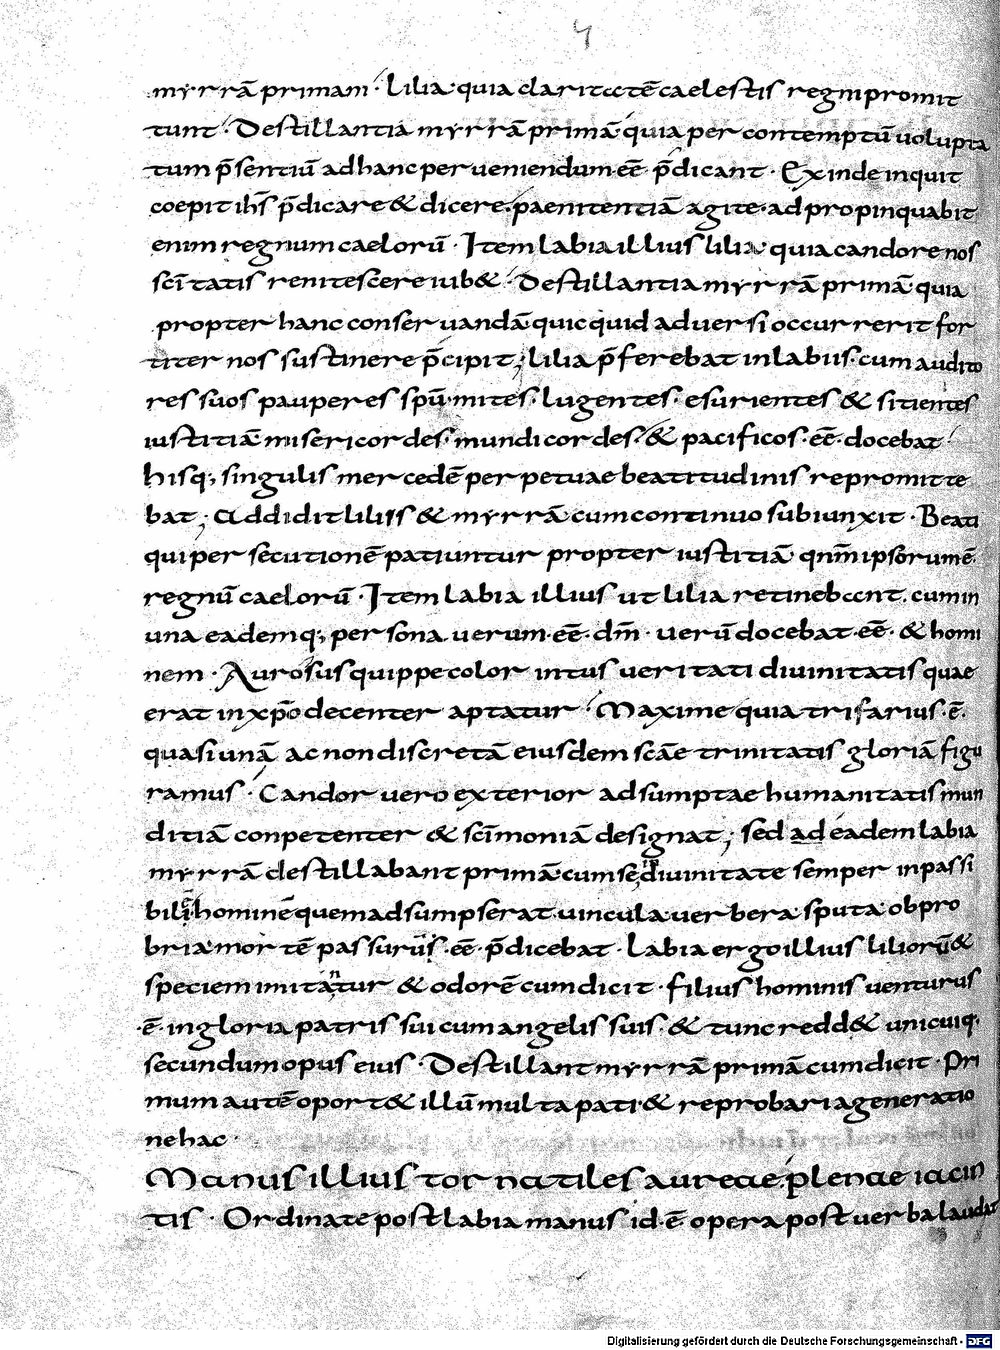 4
myrrā primam· Lilia· quia claritatē caelestis regni promit
tunt· Destillantia myrrā primā· quia per contemptū volupta
tum p̄sentiū ad hanc perveniendum·eē· p̄dicant· Exinde inquit
coepit ih̄s p̄dicare & dicere· paenitentiā agite· adpropinquabit
enim regnum caelorū· Item labia illius lilia· quia candore nos
sc̄itatis renitescere iub&· Destillantia myrrā primā· quia
propter hanc conservandā quicquid adversi occurrerit for
titer nos sustinere p̄cipit; Lilia p̄ferebat in labiis· cum audito
res suos pauperes sp̄u· mites· lugentes· esurientes & sitientes
iustitiā· misericordes· mundicordes· & pacificos·eē· docebat·
hisq; singulis mercedē perpetuae beatitudinis repromitte
bat; Addidit liliis & myrrā cum continuo subiunxit· Beati
qui persecutionē patiuntur propter iustitiā· qnm̄ ipsorum ē·
regnū caelorū· Item labia illius ut lilia retinebant· cum in
una eademq; persona verum·eē· dm̄· verū docebat·eē· & homi
nem· Aurosus quippe color intus veritati divinitatis quae
erat in xp̄o decenter aptatur· Maxime quia trifarius·ē·
quasi unā ac non discretā eiusdem sc̄ae trinitatis gloriā figu
ramus· Candor vero exterior adsumptae humanitatis mun
ditiā conpetenter & sc̄imoniā designat; sed ad eadem labia
myrrā destillabant primā cum se divinitate semper inpassi
bilē· hominē quem adsumpserat· vincula verbera· sputa· obpro
bria mortē passurus·eē· p̄dicebat· Labia ergo illius liliorū &
speciem imitantur & odorē cum dicit· filius hominis venturus
·ē· in gloria patris sui cum angelis suis· & tunc redd& unicuiq;
secundum opus eius· Destillant myrrā primā cum dicit· Pri
mum autē oport& illū multa pati· & reprobari a generatio
ne hac·
Manus illius tornatiles aureae· plenae iacin
tis· Ordinate post labia manus id·ē· opera post verba laudat
Digitalisierung gefördert durch die Deutsche Forschungsgemeinschaft - DFG